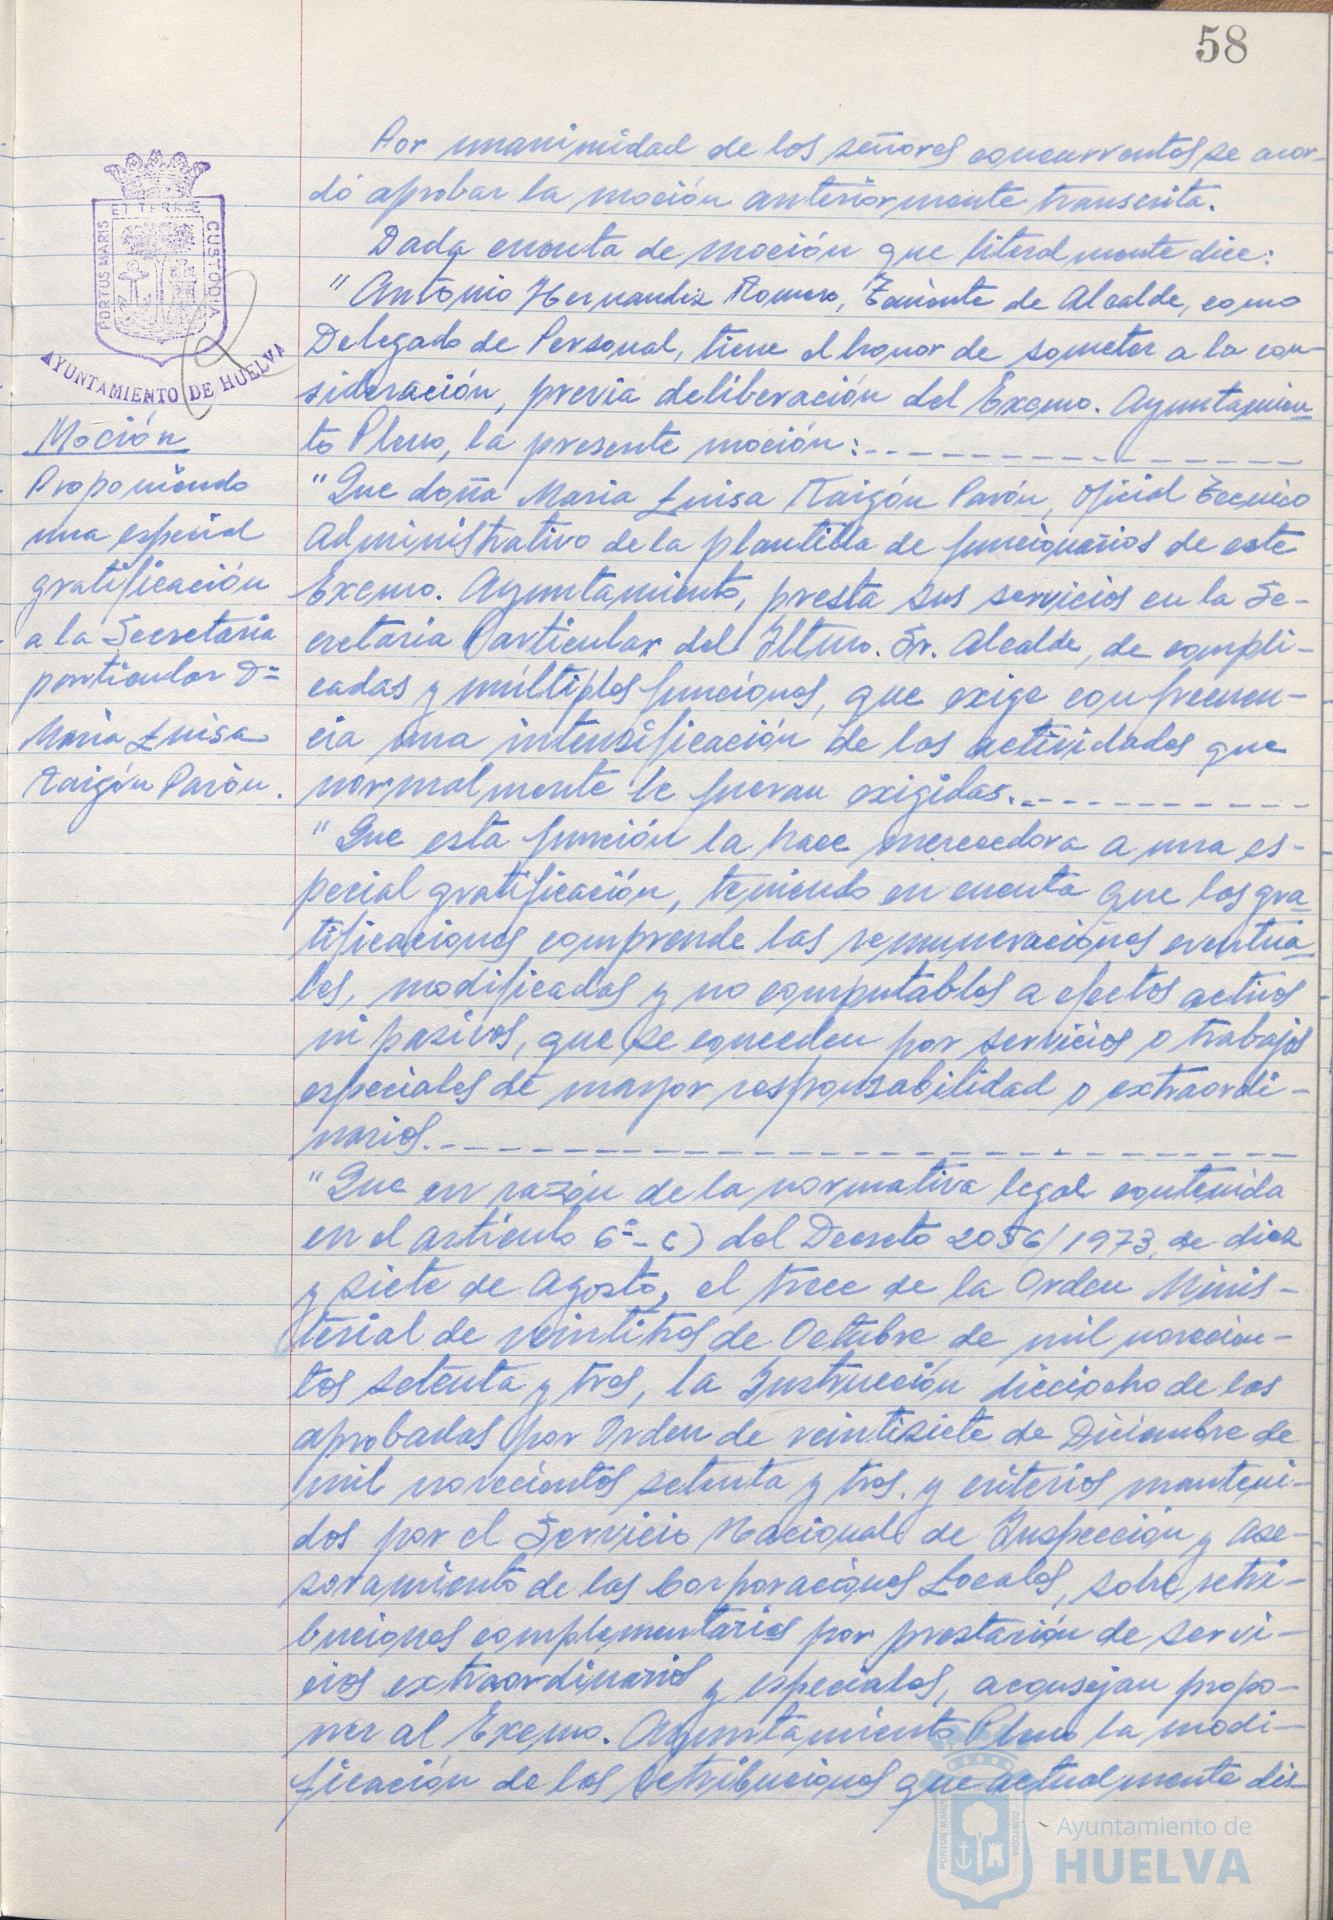 58
Por unanimidad de los señores concurrentes se acor-
dó aprobar la moción anteriormente transcrita.
Dada cuenta de moción que literalmente dice:
"Antonio Hernandez Romero, Teniente de Alcalde, como
Delegado de Personal, tiene el honor de someter a la con-
sideración, previa deliberación del Excmo. Ayuntamien-
to Pleno, la presente moción:
"Que doña Maria Luisa Raigón Pavón, Oficial Técnico
Administrativo de la plantilla de funcionarios de este
Excmo. Ayuntamiento, presta sus servicios en la Se-
cretaria Particular del Iltmo. Sr. Alcalde, de compli-
cadas y múltiples funciones, que exige con frecuen-
cia una intensificación de las actividades que
normalmente le fueran exigidas.
"Que esta función la hace merecedora a una es-
pecial gratificación, teniendo en cuenta que las gra-
tificaciones comprende las remuneraciones eventua-
les, modificadas y no computables a efectos activos
ni pasivos, que se conceden por servicios o trabajos
especiales de mayor responsabilidad o extraordi-
narios.
"Que en razón de la normativa legal contenida
en el artículo 6º-c) del Decreto 2056/1973, de diez
y siete de Agosto, el trece de la Orden Minis-
terial de veintitres de Octubre de mil novecien-
tos setenta y tres, la Instrucción dieciocho de las
aprobadas por Orden de veintisiete de Diciembre de
mil novecientos setenta y tres, y criterios manteni-
dos por el Servicio Nacional de Inspección y Ase-
soramiento de las Corporaciones Locales, sobre retri-
buciones complementarias por prestación de servi-
cios extraordinarios y especiales, aconsejan propo-
ner al Excmo. Ayuntamiento Pleno la modi-
ficación de las retribuciones que actualmente dis-
ET TERRAE
PORTUS MARIS
CUSTODIA
AYUNTAMIENTO DE HUELVA
Moción
Proponiendo
una especial
gratificación
a la Secretaria
particular Dª
Maria Luisa
Raigón Pavón.
PORTUS MARIS
CUSTODIA
Ayuntamiento de
HUELVA